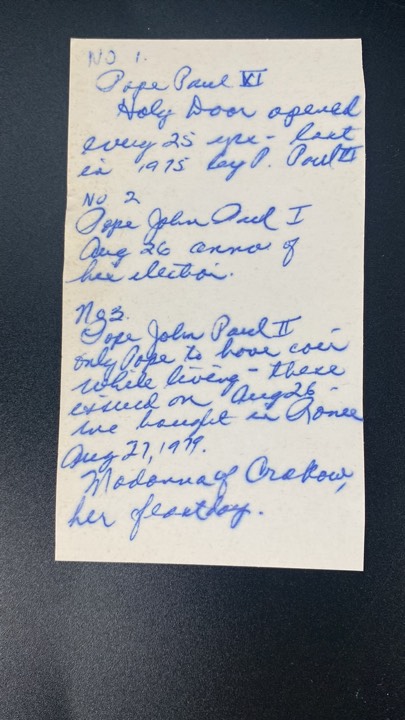 NO 1.
Pope Paul VI
Holy Door opened
every 25 yrs - last
in 1975 by P. Paul VI
NO 2
Pope John Paul I
Aug 26 anno of
his election.
No 3.
Pope John Paul II
only Pope to have coin
while living - these
issued on Aug 26 -
we bought in Rome
Aug 27, 1979.
Madonna of Crakow,
her feastday.